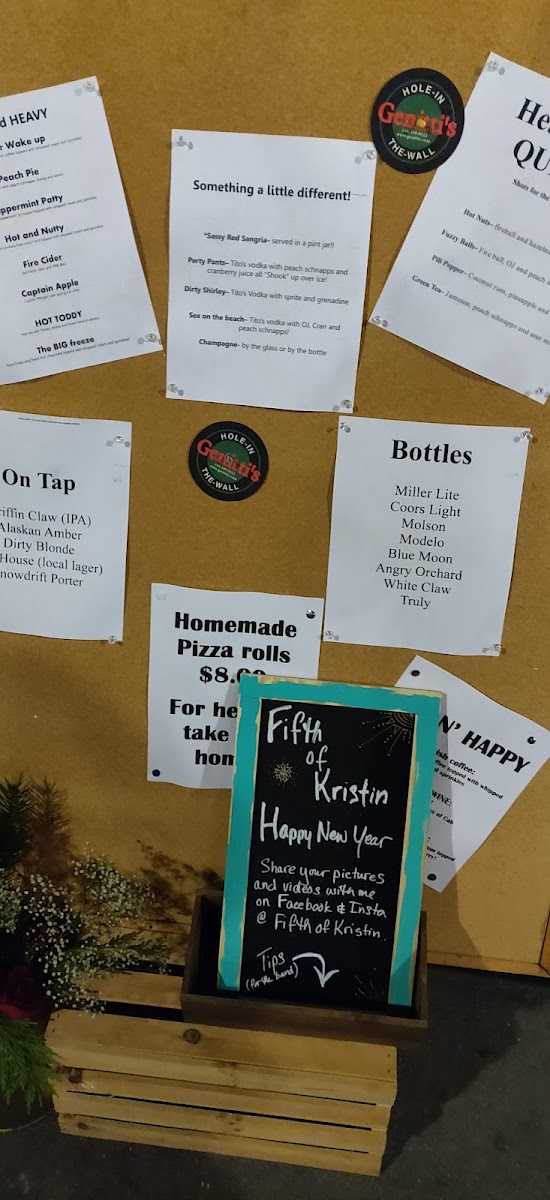 d HEAVY
r Wake up
Peach Pie
ppermint Patty
Hot and Nutty
Fire Cider
Captain Apple
HOT TODDY
The BIG freeze
Something a little different!
*Sassy Red Sangria- served in a pint jar!!
Party Pants- Tito's vodka with peach schnapps and
cranberry juice all "Shook" up over ice!
Dirty Shirley- Tito's Vodka with sprite and grenadine
Sex on the beach- Tito's vodka with OJ, Cran and
peach schnapps!
Champagne- by the glass or by the bottle
HOLE-IN
Genitti's
THE-WALL
He
QU
Shots for the
Hot Nuts- fireball and
Fuzzy Balls- Fire ball, OJ and peach
Pill Popper- Coconut rum, pineapple and
Green Tea- Jameson, peach schnapps and sour
On Tap
riffin Claw (IPA)
Alaskan Amber
Dirty Blonde
House (local lager)
nowdrift Porter
HOLE-IN
Genitti's
THE-WALL
Bottles
Miller Lite
Coors Light
Molson
Modelo
Blue Moon
Angry Orchard
White Claw
Truly
Homemade
Pizza rolls
$8.
For he
take
hom
N' HAPPY
ish coffee:
ffee topped with whipped
d sprinkles
WINE:
s of Cab
Fifth
of
Kristin
Happy New Year
Share your pictures
and videos with me
on Facebook & Insta
@ Fifth of Kristin.
Tips
(for the band)